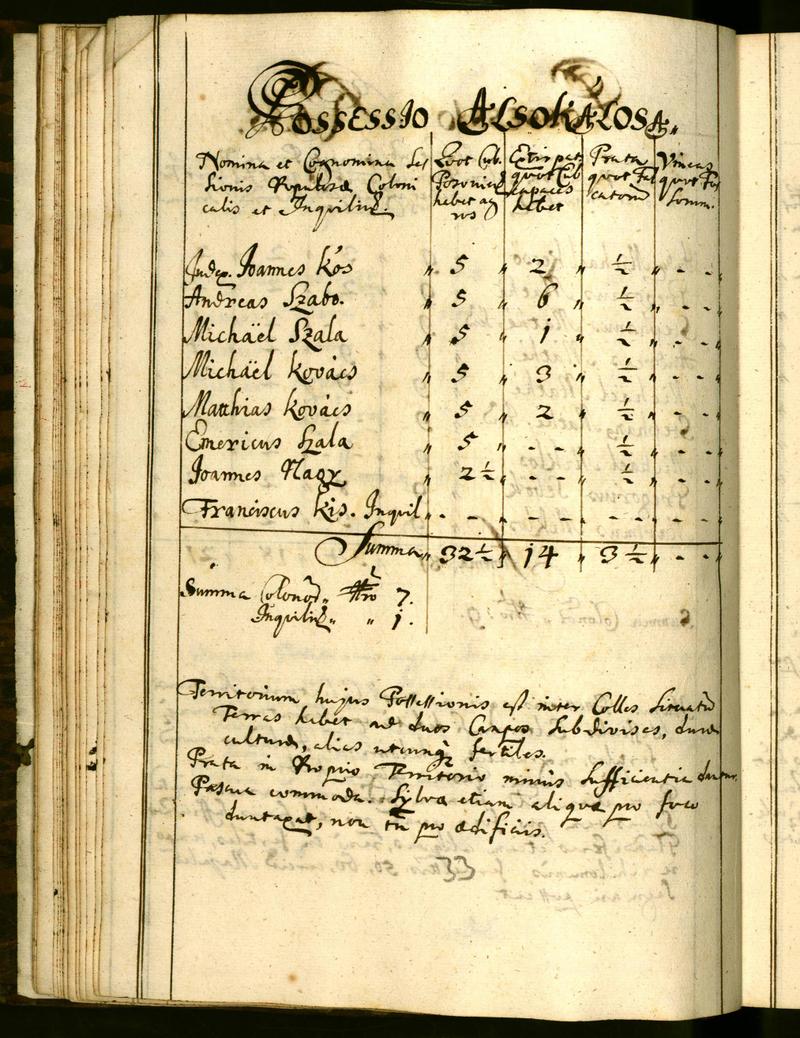 POSSESSIO ALSOKÁLOSA,,
Nomina et Cognomina Ses
sionis Populosæ Coloni
calis et Inquiliñ.
Quot Cub.
Posonien
habet ag
ros
Extirpat
quot Cub
capaces
habet
Prata
quot Fal
catorũ
Vineas
quot Fos
sorum.
Judex. Joannes Kós „ 5 „ 2 „ ½ „ - - „
Andreas Szabo. „ 5 „ 6 „ ½ „ - - „
Michäel Szala „ 5 „ 1 „ ½ „ - - „
Michäel Kovács „ 5 „ 3 „ ½ „ - - „
Matthias Kovács „ 5 „ 2 „ ½ „ - - „
Emericus Szala „ 5 „ - - „ ½ „ - - „
Joannes Nagy „ 2½ „ - - „ ½ „ - - „
Franciscus Kis. Inquil „ - - „ - - „ - - „ - - „
Summa „ 32½ „ 14 „ 3½ „ - - „
Summa Colonoꝝ „ Nro 7.
Inquiliñ „ „ 1.
Territorium hujus Possessionis est inter Colles situatũ
Terras habet ad duos Campos subdivisas, duræ
culturæ, alias utcunq; fertiles.
Prata in Proprio Territorio minus sufficientia dantur.
Pascua commoda. Sylvæ etiam aliquæ pro foco
duntaxat, non tñ pro ædificiis.
33